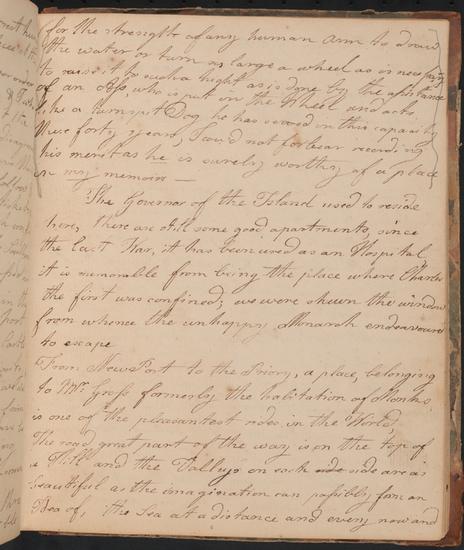 (for the strength of any human arm to draw
the water or turn as large a wheel as is necessary
to raise it to such a hight as is done by the assistance
of an Ass, who is put in the Wheel and acts
like a turnspit Dog, he has served in this capacity
these forty years, I could not forbear recording
his merit as he is surely worthy of a place
in my memoirs —
The Governor of the Island used to reside
here, there are still some good apartments, since
the last War, it has been used as an Hospital,
it is memorable from being the place where Charles
the first was confined; we were shewn the window
from whence the unhappy Monarch endeavoured
to escape
From New Port to the Priory, a place, belonging
to Mr. Gross formerly the habitation of Monks
is one of the pleasantest rides, in the World,
The road great part of the way is on the top of
a Hill and the Valleys on each side side are as
beautiful as the imagination can possibly form an
Idea of, the Sea at a distance and every now and